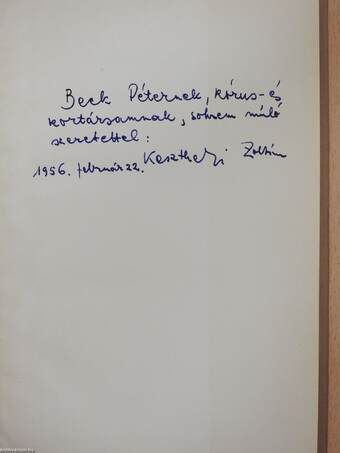 Beck Péternek, kórus- és
kortársamnak, sohnem múló
szeretettel:
1956. február 22. Keszthelyi Zoltán